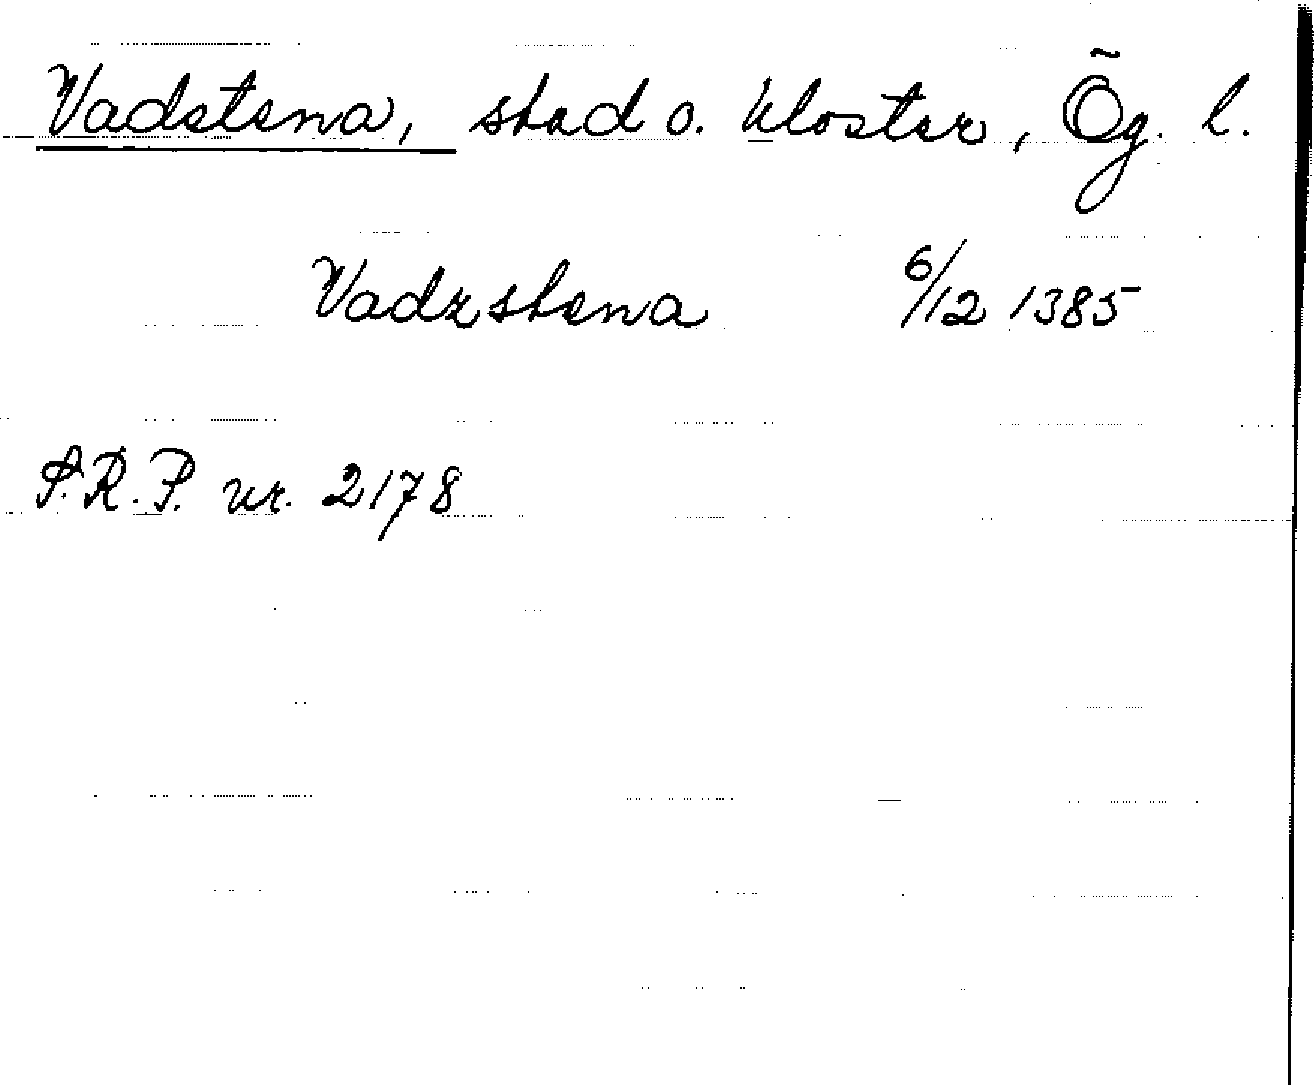 Vadstena, stad o. kloster, Ög. l.
Vadzstena 6/12 1385
S.R.P. nr. 2178